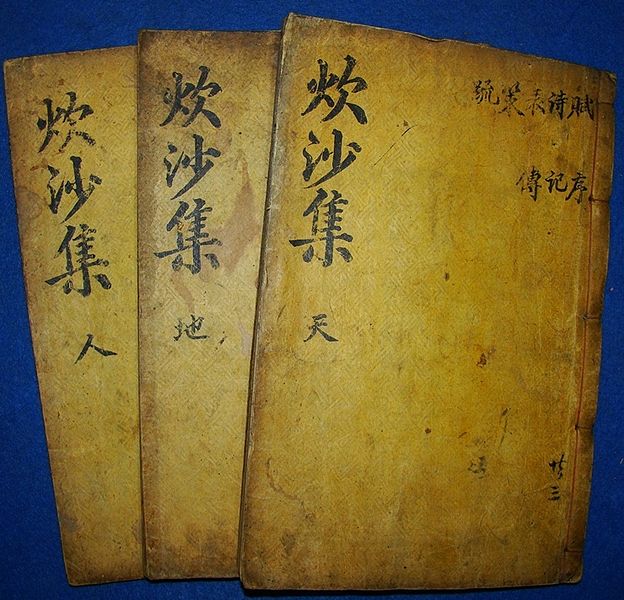 賦詩表策疏
序記傳
共三
炊沙集
天
炊沙集
地
炊沙集
人